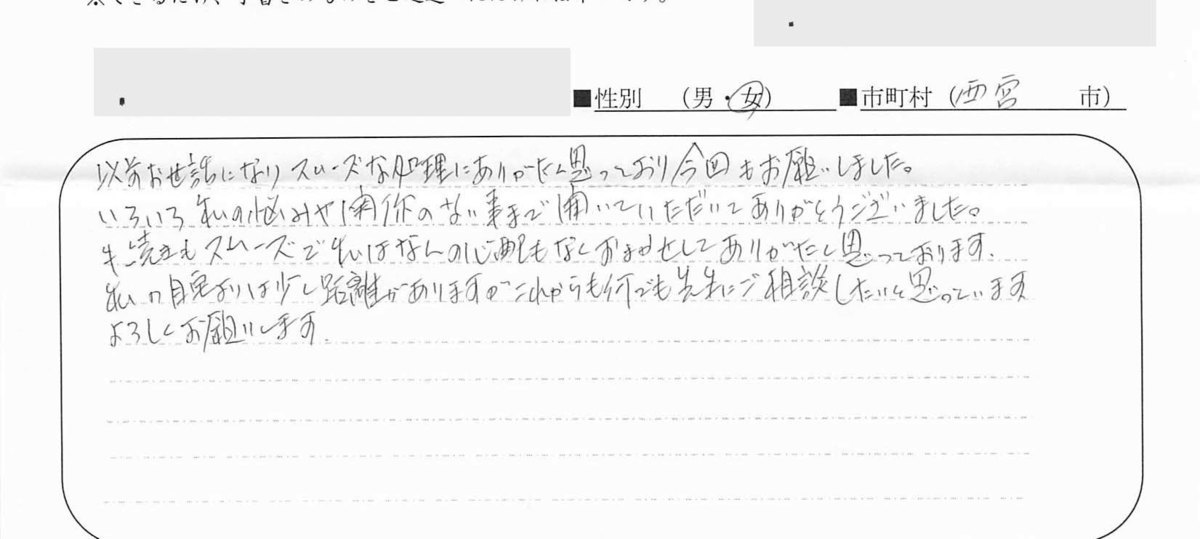 ■性別 (男・女) ■市町村 (西宮 市)
以前お世話になりスムーズな処理にありがたく思っており今回もお願いしました。
いろいろ私の悩みや関係のない事まで聞いていただいてありがとうございました。
手続きもスムーズで私はなんの心配もなくおまかせしてありがたく思っております。
私の自宅よりは少し距離がありますがこれからも何でも先生にご相談したいと思っています
よろしくお願いします。